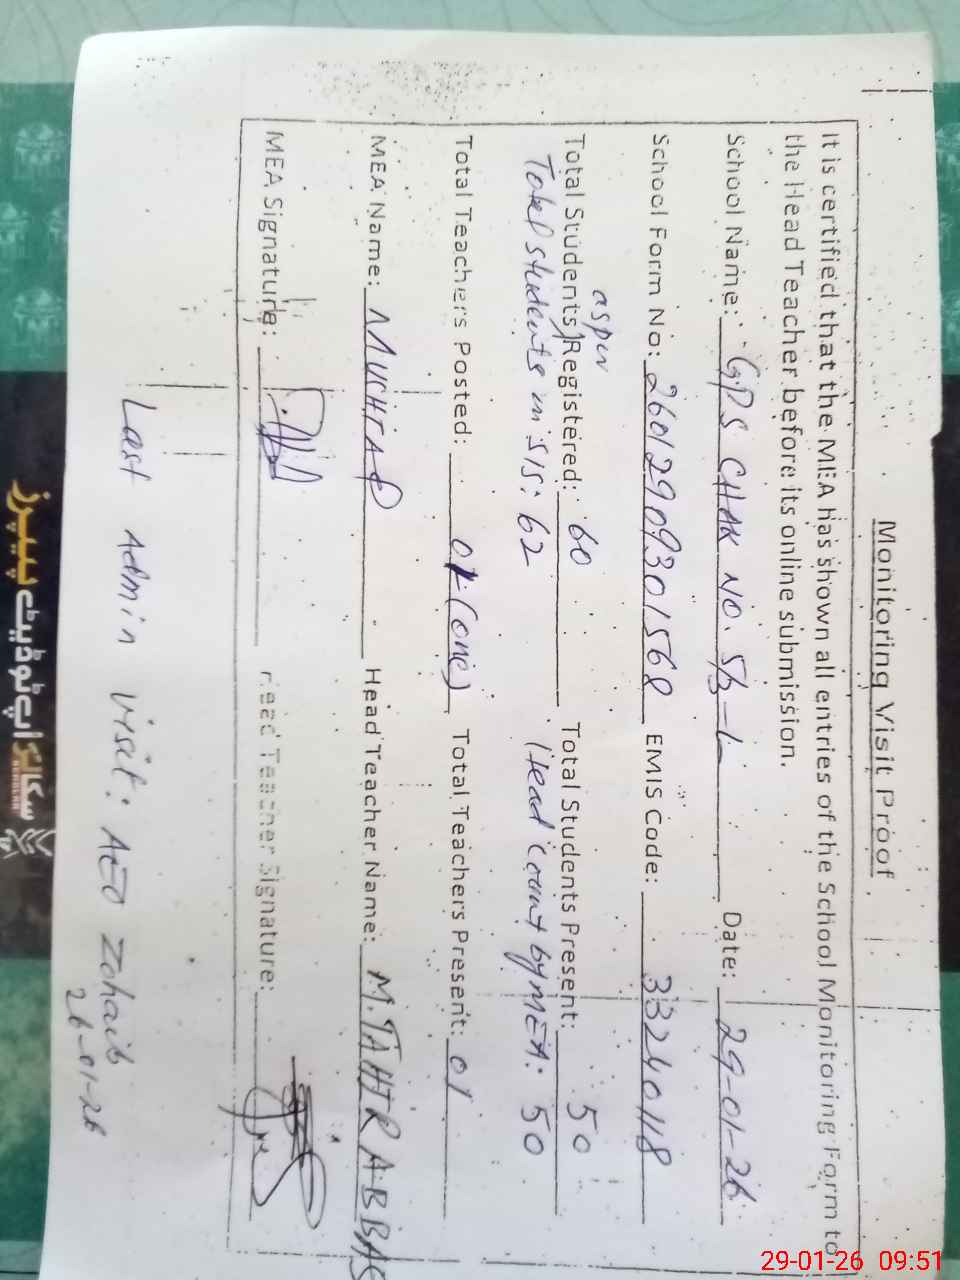 Monitoring Visit Proof
It is certified that the MEA has shown all entries of the School Monitoring Form to
the Head Teacher before its online submission.
School Name: GPS CHAK NO. 5/3-L Date: 29-01-26
School Form No: 26012909301568 EMIS Code: 33240118
as per
Total Students Registered: 60 Total Students Present: 50
Total students in SIS: 62 (Head Count by MEA: 50
Total Teachers Posted: 01 (one) Total Teachers Present: 01
MEA Name: MUSHTAQ Head Teacher Name: M. TAHIR ABBAS
MEA Signature: Head Teacher Signature:
Last Admin Visit: AEO Zohaib
26-01-26
سکالر اپ ٹو ڈیٹ پیپرز
29-01-26 09:51